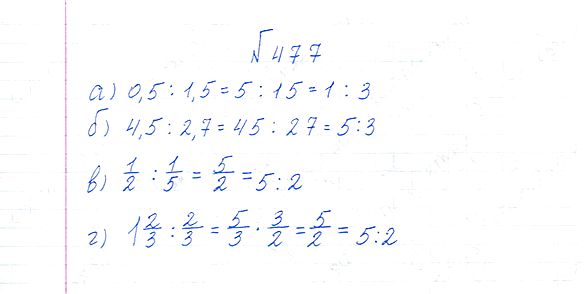 №477
а) 0,5 : 1,5 = 5 : 15 = 1 : 3
б) 4,5 : 2,7 = 45 : 27 = 5:3
в) 1/2 : 1/5 = 5/2 = 5:2
г) 1 2/3 : 2/3 = 5/3 · 3/2 = 5/2 = 5:2